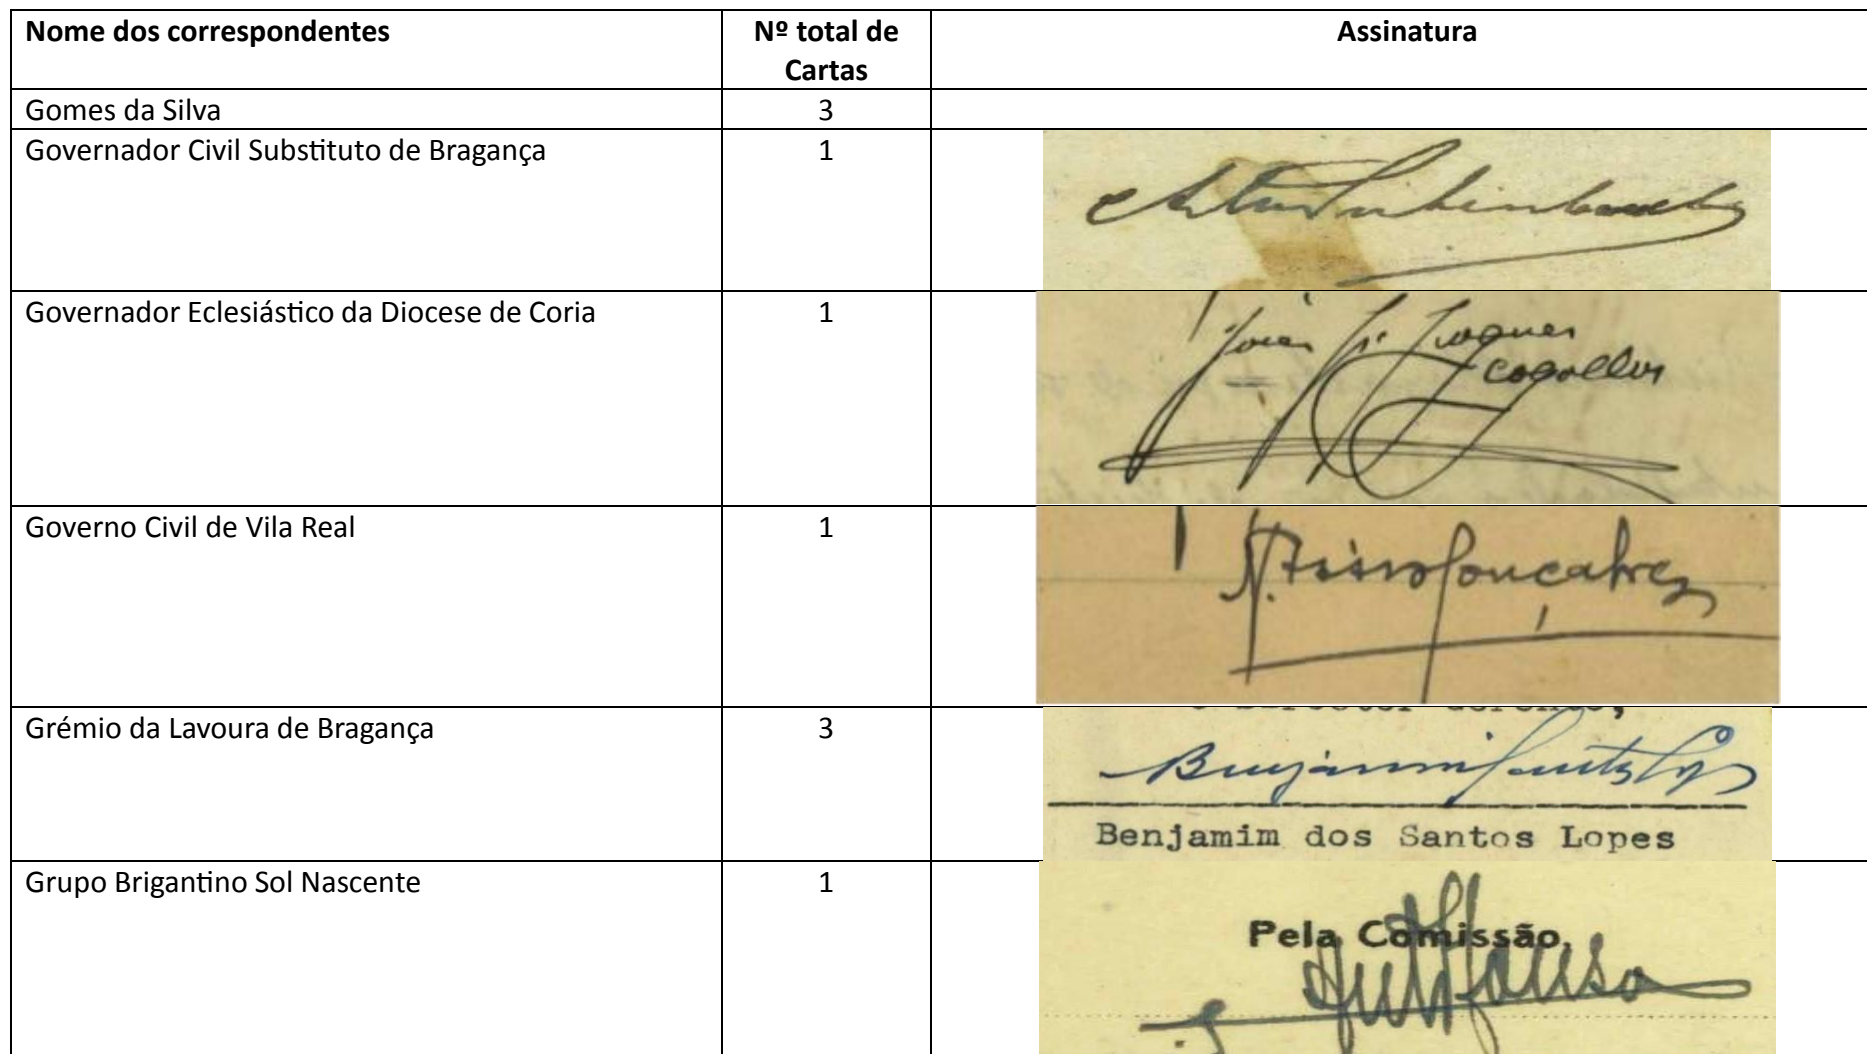 Nome dos correspondentes
Nº total de
Cartas
Assinatura
Gomes da Silva
3
Governador Civil Substituto de Bragança
1
Governador Eclesiástico da Diocese de Coria
1
Cogollos
Governo Civil de Vila Real
1
Gonçalves
Grémio da Lavoura de Bragança
3
Benjamim Santos Lopes
Benjamim dos Santos Lopes
Grupo Brigantino Sol Nascente
1
Pela Comissão,